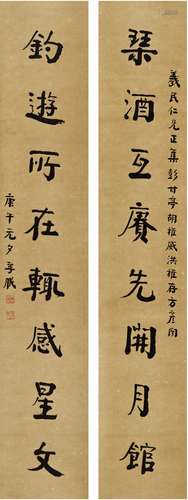 琹酒互賡先開月館
義民仁兄正集彭甘亭胡稚威洪稚存方彦聞
釣遊所在輒感星文
庚午元夕季